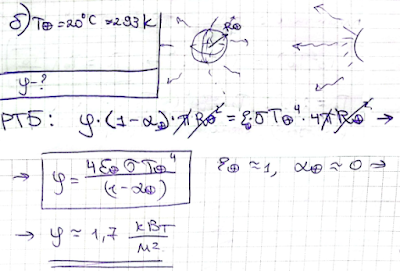 б) T⊕=20°C ≈293K
R⊕
φ-?
РТБ: φ·(1-α⊕)·πR⊕² = ε⊕σT⊕⁴·4πR⊕² →
→ φ = 4ε⊕σT⊕⁴ / (1-α⊕) ε⊕≈1, α⊕≈0 →
→ φ ≈ 1,7 кВт/м²